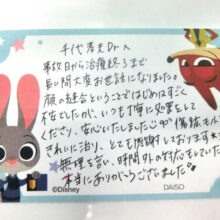 千代寿夫Dr.へ
事故日から治療終了まで
長い間大変お世話になりました。
顔の縫合ということではじめはすごく
不安でしたが、いつも丁寧に処置をして
くださり、安心いたしました。傷後も
きれいに治り、とても感謝しております
無理を言い、時間外の対応もしていただき
本当にありがとうございました。
©Disney
DAISO